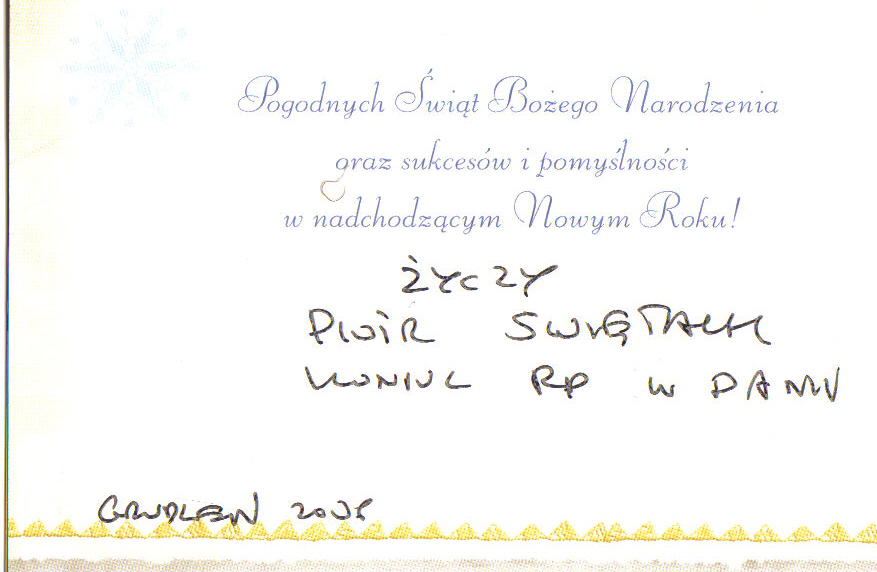 Pogodnych Świąt Bożego Narodzenia
oraz sukcesów i pomyślności
w nadchodzącym Nowym Roku!
ŻYCZY
KONSUL RP W DANII
GRUDZIEŃ